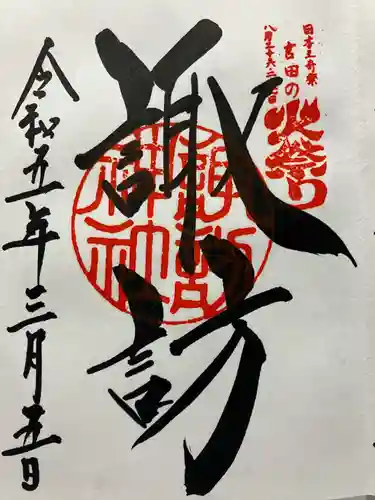 日本三奇祭
八月二十六・二十七日
吉田の
火祭り
諏訪
諏訪神社
令和五年三月五日